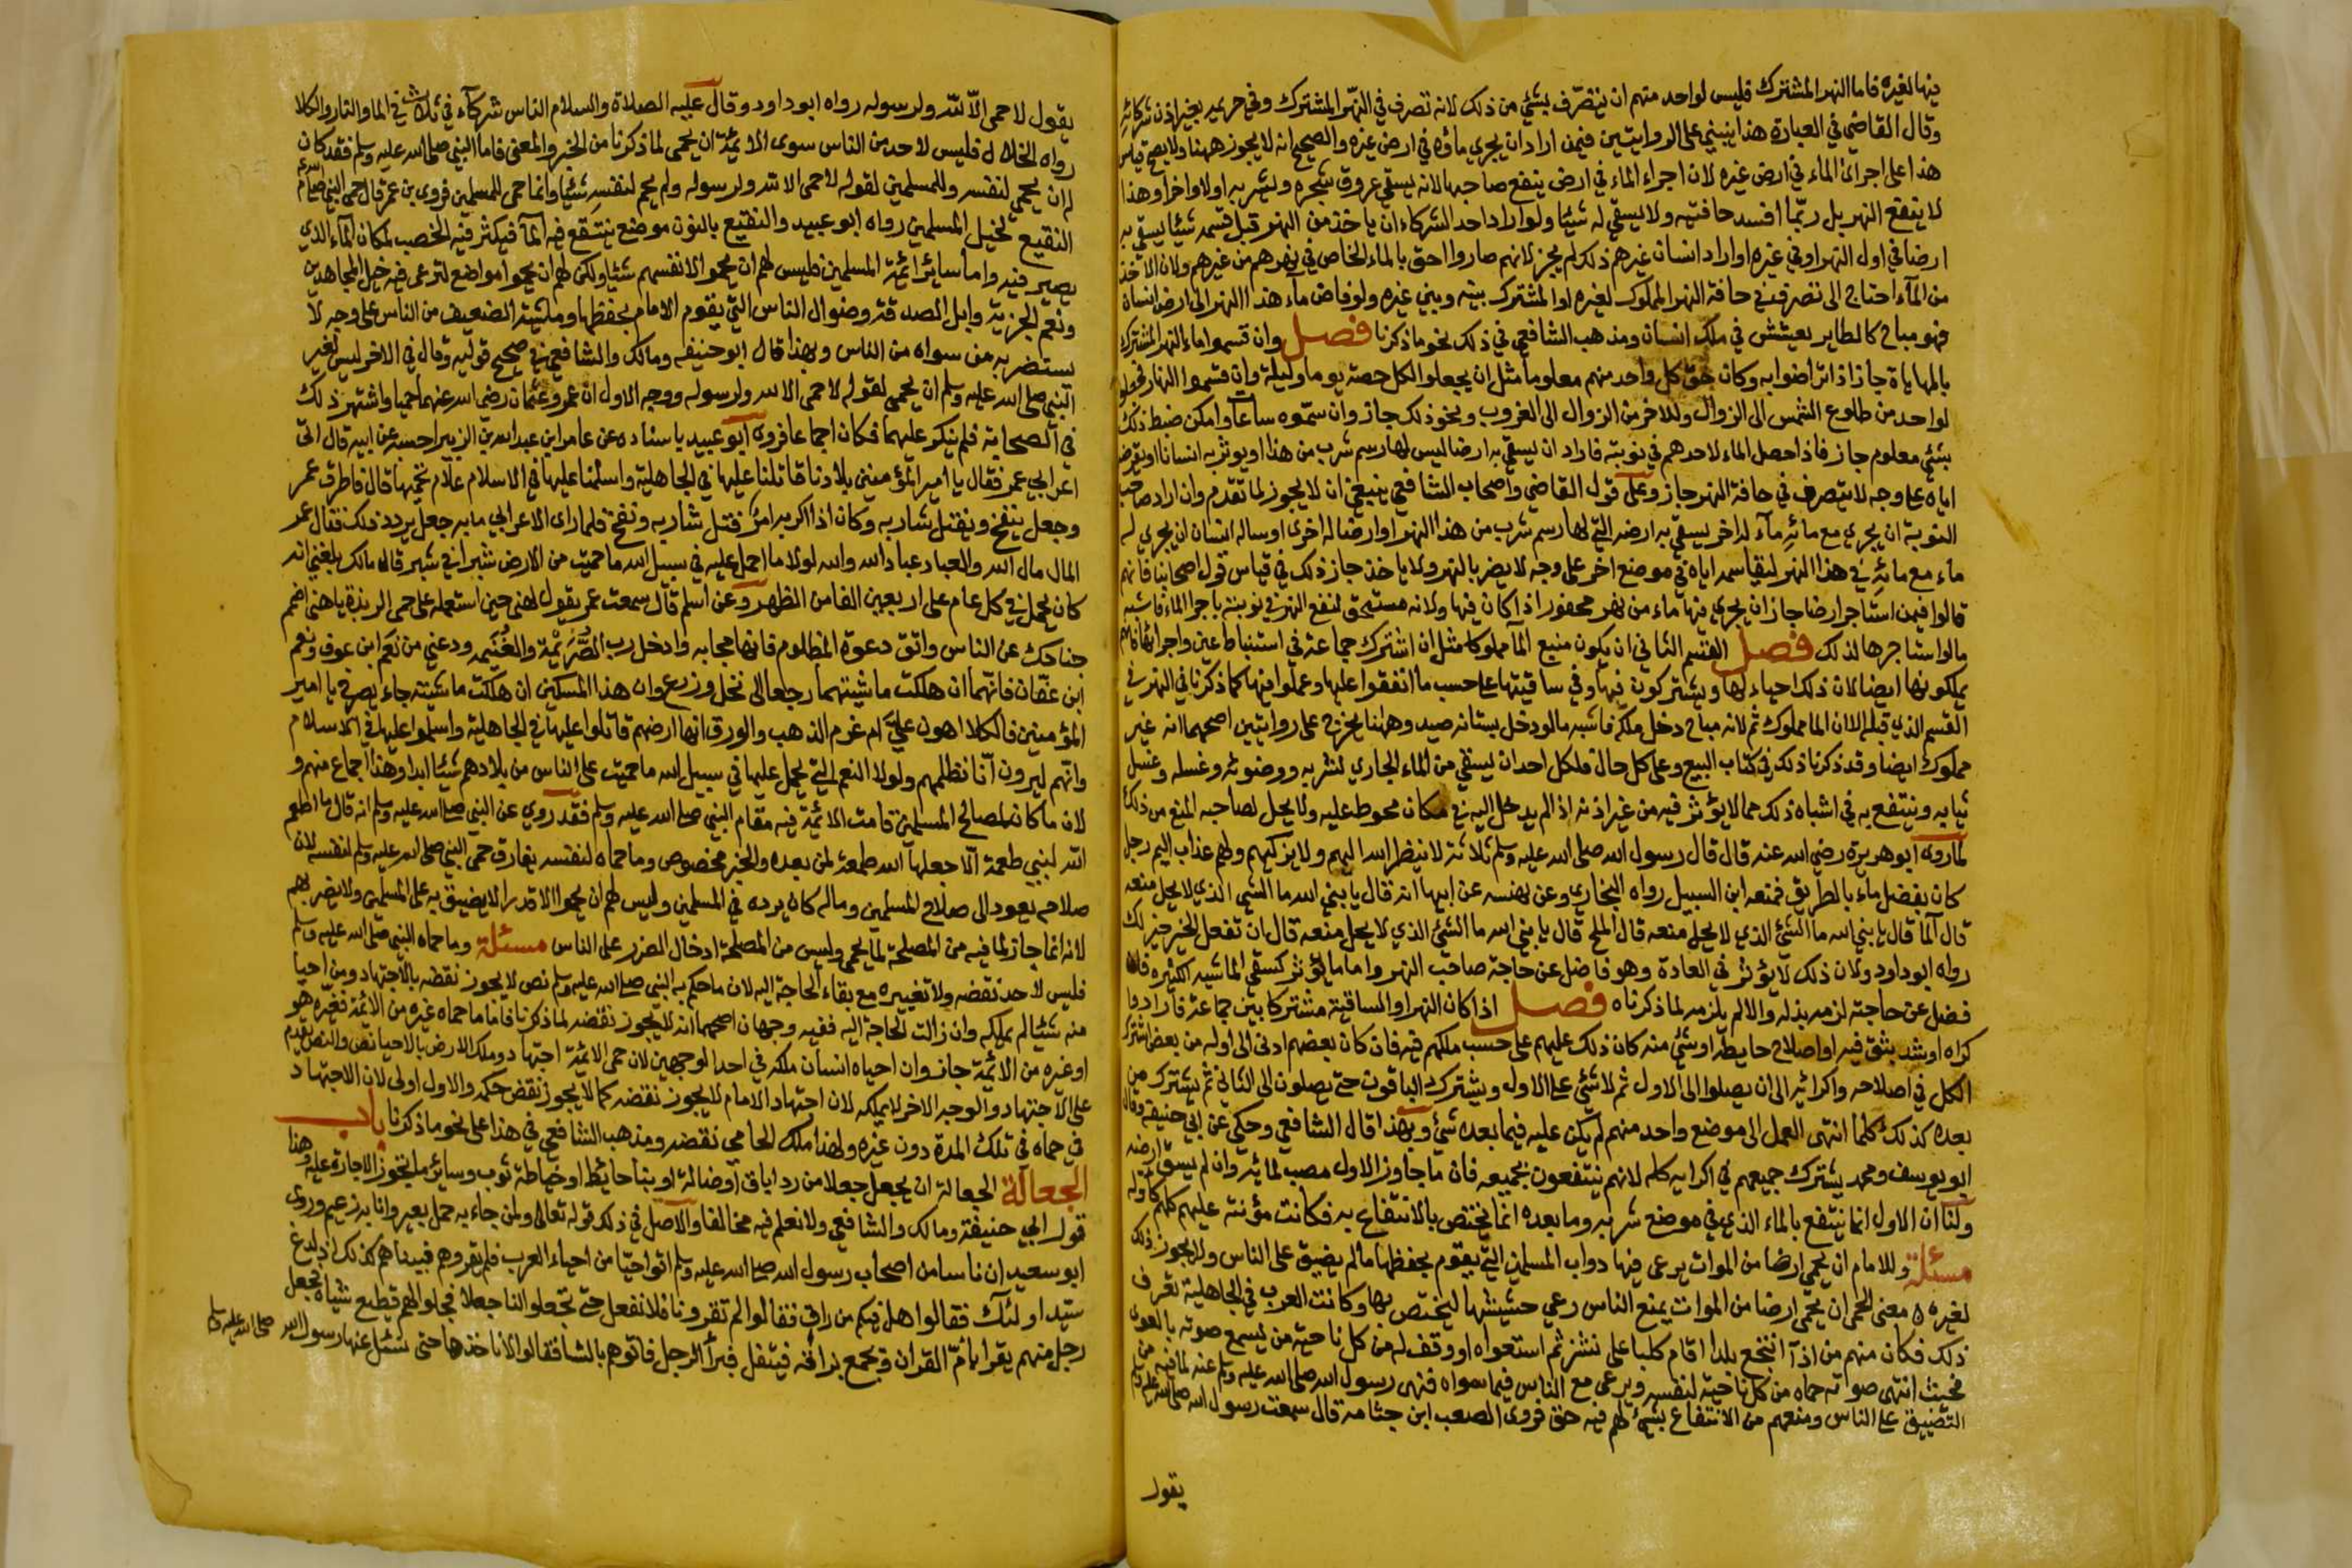 فيها لغيره فاما النهر المشترك فليس لواحد منهم ان يتصرف بشئ من ذلك لانه تصرف في النهر المشترك وفي حريمه بغير اذن شركائه
وقال القاضي في العبارة هذا ينبني على الروايتين فيمن اراد ان يجري ماؤه في ارض غيره والصحيح انه لا يجوز ههنا ولا يصح قياس
هذا على اجرائ الماء في ارض غيره لان اجراء الماء في ارض ينفع صاحبها لانه يسقي عروق شجره ويشربه اولا واخرا وهذا
لا ينفع النهر بل ربما افسد حافتيه ولا يسقي له شيئا ولو اراد احد الشركاء ان ياخذ من النهر قبل قسمه شيئا يسقي به
ارضا في اول النهر او في غيره او اراد انسان غيرهم ذلك لم يجز لانهم صاروا احق بالماء الخاص في نهرهم من غيرهم ولان الاخذ
من الماء احتاج الى تصرف في حافة النهر المملوك لغيره او المشترك بينه وبين غيره ولو فاض ماء هذا النهر الى ارض انسان
فهو مباح كالطاير يعشش في ملك انسان ومذهب الشافعي في ذلك نحو ما ذكرنا فصل وان قسموا ماء النهر المشترك
بالمهاياة جاز اذا تراضوا به وكان حق كل واحد منهم معلوما مثل ان يجعلوا لكل حصة يوما وليلة وان قسموا النهار فجعلوا
لواحد من طلوع الشمس الى الزوال وللاخر من الزوال الى الغروب ونحو ذلك جاز وان سموه ساعا وامكن ضبط ذلك
بشئ معلوم جاز فاذا احصل الماء لاحدهم في نوبته فاراد ان يسقي به ارضا ليس لها رسم شرب من هذا او يوثر به انسانا او يقرضه
اياه على وجه لا يتصرف في حافة النهر جاز وعلى قول القاضي واصحاب الشافعي ينبغي ان لا يجوز لما تقدم وان اراد صاحب
النوبة ان يجري مع مائه ماء له اخر يسقي به ارضه التي لها رسم شرب من هذا النهر او ارضا له اخرى او ساله انسان ان يجري له
ماء مع مائه في هذا النهر ليقاسمه اياه في موضع اخر على وجه لا يضر بالنهر ولا باخذ جاز ذلك في قياس قول اصحابنا فانهم
قالوا فيمن استاجر ارضا جاز ان يجري فيها ماء من نهر محفور اذا كان فيها ولانه مستحق لنفع النهر في نوبته باجرا الماء فاشبه
مالو استاجرها لذلك فصل القسم الثاني ان يكون منبع الما مملوكا مثل ان اشترك جماعة في استنباط عين واجرائها فانهم
يملكونها ايضا لان ذلك احياء لها ويشتركون فيها وفي ساقيتها على حسب ما انفقوا عليها وعملوا فيها كما ذكرنا في النهر في
القسم الذي قبله الا ان الما مملوك ثم لانه مباح دخل ملكه فاشبه مالو دخل بستانه صيد وههنا يخرج على روايتين اصحهما انه غير
مملوك ايضا وقد ذكرنا ذلك في كتاب البيع وعلى كل حال فلكل احد ان يستقي من الماء الجاري لشربه ووضوئه وغسله وغسل
ثيابه وينتفع به في اشباه ذلك مما لا يؤثر فيه من غير اذنه اذا لم يدخل اليه في مكان محوط عليه ولا يحل لصاحبه المنع من ذلك
لما روى ابو هريرة رضي الله عنه قال قال رسول الله صلى الله عليه وسلم ثلاثة لا ينظر الله اليهم ولا يزكيهم ولهم عذاب اليم رجل
كان بفضل ماء بالطريق فمنعه ابن السبيل رواه البخاري وعن بهيسه عن ابيها انه قال يا نبي الله ما الشئ الذي لا يحل منعه
قال الما قال يا نبي الله ما الشئ الذي لا يحل منعه قال الملح قال يا نبي الله ما الشئ الذي لا يحل منعه قال ان تفعل الخير خير لك
رواه ابو داود ولان ذلك لا يؤثر في العادة وهو فاضل عن حاجة صاحب النهر واما ما يؤثر كسقي الماشيه الكثيره فان
فضل عن حاجته لزمه بذله والا لم يلزمه لما ذكرناه فصل اذا كان النهر او الساقية مشتركا بين جماعة فارادوا
كراه او سد بثق فيه او اصلاح حايطه او شئ منه كان ذلك عليهم على حسب ملكهم فيه فان كان بعضهم ادنى الى اوله من بعض اشترك
الكل في اصلاحه واكرائه الى ان يصلوا الى الاول ثم لا شئ على الاول ويشترك الباقون حتى يصلون الى الثاني ثم يشترك من
بعده كذلك كلما انتهى العمل الى موضع واحد منهم لم يكن عليه فيما بعده شئ وبهذا قال الشافعي وحكي عن ابي حنيفة وقال
ابو يوسف ومحمد يشترك جميعهم في اكرايه كله لانهم ينتفعون بجميعه فان ما جاوز الاول مصب لمائه وان لم يسق ارضه
ولنا ان الاول انما ينتفع بالماء الذي في موضع شربه وما بعده انما يختص بالانتفاع به فكانت مؤنته عليهم كلهم كاوله
مسئلة وللامام ان يحمي ارضا من الموات يرعى فيها دواب المسلمين التي يقوم بحفظها مالم يضيق على الناس ولا يجوز ذلك
لغيره ه معنى الحمى ان يحمي ارضا من الموات يمنع الناس رعي حشيشها ليختص بها وكانت العرب في الجاهلية تعرف
ذلك فكان منهم من اذا انتجع بلدا اقام كلبا على نشز ثم استعواه ووقف له من كل ناحية من يسمع صوته بالعوى
فحيث انتهى صوته حماه من كل ناحية لنفسه ويرعى مع الناس فيما سواه فنهى رسول الله صلى الله عليه وسلم عنه لما فيه من
التضييق على الناس ومنعهم من الانتفاع بشئ لهم فيه حق فروى الصعب ابن جثامة قال سمعت رسول الله صلى الله عليه وسلم
يقول
يقول لا حمى الا لله ولرسوله رواه ابو داود وقال عليه الصلاة والسلام الناس شركآء في ثلاث في الما والنار والكلا
رواه الخلال ه فليس لاحد من الناس سوى الائمة ان يحمي لما ذكرنا من الخبر والمعنى فاما النبي صلى الله عليه وسلم فقد كان
له ان يحمي لنفسه وللمسلمين لقوله لا حمى الا لله ولرسوله ولم يحم لنفسه شيئا وانما حمى للمسلمين فروى بن عمر قال حمى النبي صلى الله عليه وسلم
النقيع لخيل المسلمين رواه ابو عبيد والنقيع بالنون موضع ينتقع فيه الما فيكثر فيه الخصب لمكان الماء الذي
يصير فيه واما سائر ائمة المسلمين فليس لهم ان يحموا لانفسهم شيئا ولكن لهم ان يحموا مواضع لترعى فيه خيل المجاهدين
ونعم الجزية وابل الصدقة وضوال الناس التي يقوم الامام بحفظها وماشية الضعيف من الناس على وجه لا
يستضر به من سواه من الناس وبهذا قال ابو حنيفه ومالك والشافعي في صحيح قوليه وقال في الاخر ليس لغير
النبي صلى الله عليه وسلم ان يحمي لقوله لا حمى الا لله ولرسوله ووجه الاول ان عمر وعثمان رضي الله عنهما حميا واشتهر ذلك
في الصحابة فلم ينكر عليهما فكان اجماعا فروى ابو عبيد باسناده عن عامر ابن عبد الله بن الزبير احسبه عن ابيه قال اتى
اعرابي عمر فقال يا امير المؤمنين بلادنا قاتلنا عليها في الجاهلية واسلمنا عليها في الاسلام علام تحميها قال فاطرق عمر
وجعل ينفخ ويفتل شاربه وكان اذا اكربه امر فتل شاربه ونفخ فلما راى الاعرابي ما به جعل يردد ذلك فقال عمر
المال مال الله والعباد عباد الله والله لولا ما احمل عليه في سبيل الله ما حميت من الارض شبرا في شبر قال مالك بلغني انه
كان يحمل في كل عام على اربعين الفا من الظهر وعن اسلم قال سمعت عمر يقول لهني حين استعمله على حمى الربذة يا هني اضمم
جناحك عن الناس واتق دعوة المظلوم فانها مجابه وادخل رب الصريمة والغنيمه ودعني من نعم ابن عوف ونعم
ابن عفان فانهما ان هلكت ماشيتهما رجعا الى نخل وزرع وان هذا المسكين ان هلكت ماشيته جاء يصرخ يا امير
المؤمنين فالكلا اهون علي ام غرم الذهب والورق انها ارضهم قاتلوا عليها في الجاهلية واسلموا عليها في الاسلام
وانهم ليرون انا نظلمهم ولولا النعم التي يحمل عليها في سبيل الله ما حميت على الناس من بلادهم شيئا ابدا وهذا اجماع منهم و
لان ما كان لمصالح المسلمين قامت الائمة فيه مقام النبي صلى الله عليه وسلم فقد روي عن النبي صلى الله عليه وسلم انه قال ما اطعم
الله لنبي طعمة الا جعلها الله طعمة لمن بعده والخبر مخصوص وما حماه لنفسه يفارق حمى النبي صلى الله عليه وسلم لنفسه لان
صلاحه يعود الى صلاح المسلمين وماله كان يرده في المسلمين وليس لهم ان يحموا الا قدرا لا يضيق به على المسلمين ولا يضر بهم
لانه انما جاز لما فيه من المصلحة لما يحمى وليس من المصلحة ادخال الضرر على الناس مسئلة وما حماه النبي صلى الله عليه وسلم
فليس لاحد نقضه ولا تغييره مع بقاء الحاجة اليه لان ما حكم به النبي صلى الله عليه وسلم نص لا يجوز نقضه بالاجتهاد ومن احيا
منه شيئا لم يملكه وان زالت الحاجة اليه ففيه وجهان اصحهما انه لا يجوز نقضه لما ذكرنا فاما ما حماه غيره من الائمة فغيره هو
او غيره من الائمة جاز وان احياه انسان ملكه في احد الوجهين لان حمى الائمة اجتهاد وملك الارض بالاحيا نص والنص يقدم
على الاجتهاد والوجه الاخر لا يملكه لان اجتهاد الامام لا يجوز نقضه كما لا يجوز نقض حكمه والاول اولى لان الاجتهاد
في حماه في تلك المدة دون غيره ولهذا ملك الحامي نقضه ومذهب الشافعي في هذا على نحو ما ذكرنا باب
الجعالة الجعالة ان يجعل جعلا من رد اباق او ضالة او بنا حائط او خياطة ثوب وسائر ما يجوز الاجارة عليه وهذا
قول ابي حنيفة ومالك والشافعي ولا نعلم فيه مخالفا والاصل في ذلك قوله تعالى ولمن جاء به حمل بعير وانا به زعيم وروى
ابو سعيد ان ناسا من اصحاب رسول الله صلى الله عليه وسلم اتوا حيا من احياء العرب فلم يقروهم فبيناهم كذلك اذ لدغ
سيد اولئك فقالوا هل فيكم من راق فقالوا لم تقرونا فلا نفعل حتى تجعلوا لنا جعلا فجعلوا لهم قطيع شياه فجعل
رجل منهم يقرا بام القران ويجمع بزاقه فيتفل فبرأ الرجل فاتوهم بالشا فقالوا لا ناخذها حتى نسئل عنها رسول الله صلى الله عليه وسلم